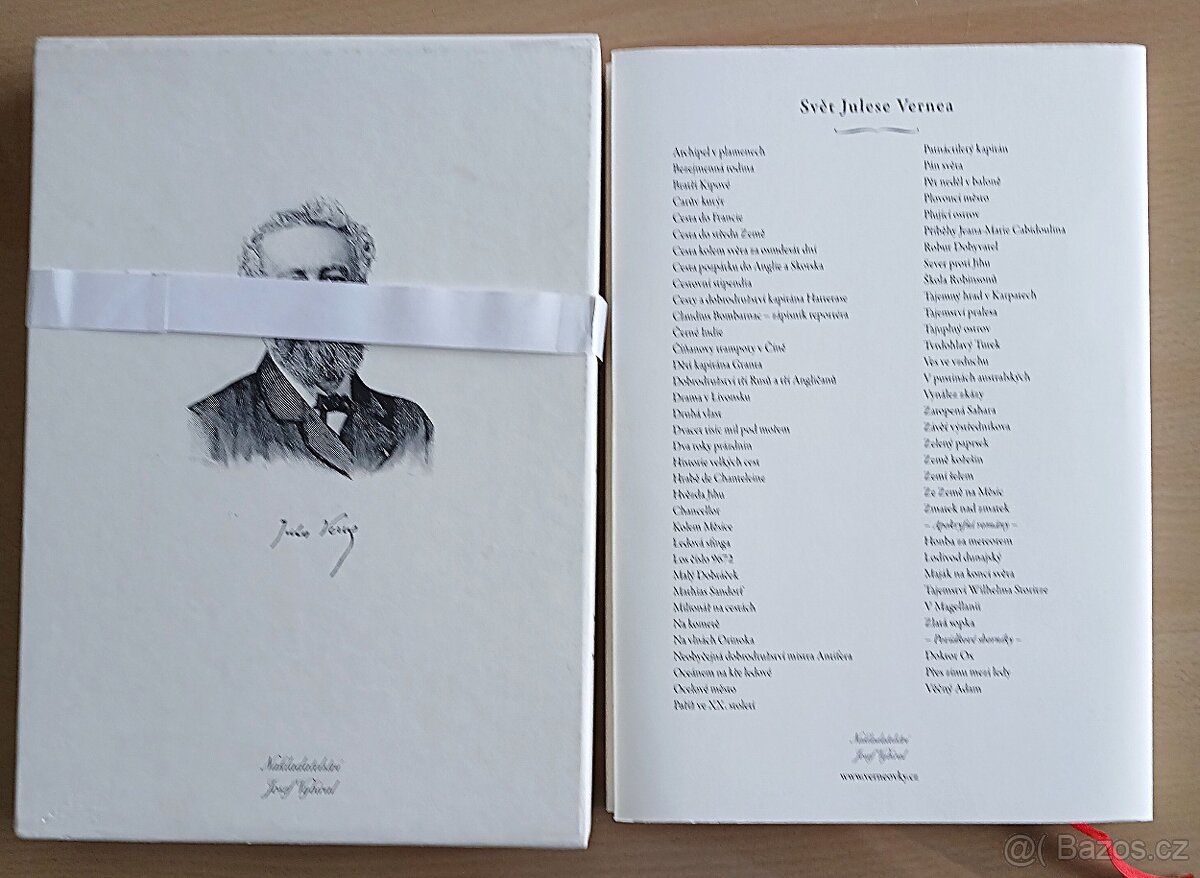 Jules Verne
Nakladatelství
Josef Vybíral
Svět Julese Vernea
Archipel v plamenech
Bezejmenná rodina
Bratři Kipové
Carův kurýr
Cesta do Francie
Cesta do středu Země
Cesta kolem světa za osmdesát dní
Cesta pozpátku do Anglie a Skotska
Cestovní stipendia
Cesty a dobrodružství kapitána Hatterase
Claudius Bombarnac – zápisník reportéra
Černé Indie
Číňanovy trampoty v Číně
Děti kapitána Granta
Dobrodružství tří Rusů a tří Angličanů
Drama v Livonsku
Druhá vlast
Dvacet tisíc mil pod mořem
Dva roky prázdnin
Historie velkých cest
Hrabě de Chanteleine
Hvězda Jihu
Chancellor
Kolem Měsíce
Ledová sfinga
Los číslo 9672
Malý Dobráček
Mathias Sandorf
Milionář na cestách
Na kometě
Na vlnách Orinoka
Neobyčejná dobrodružství mistra Antifera
Oceánem na kře ledové
Ocelové město
Paříž ve XX. století
Patnáctiletý kapitán
Pán světa
Pět neděl v balóně
Plovoucí město
Plující ostrov
Příběhy Jeana-Marie Cabidoulina
Robur Dobyvatel
Sever proti Jihu
Škola Robinsonů
Tajemný hrad v Karpatech
Tajemství pralesa
Tajuplný ostrov
Tvrdohlavý Turek
Ves ve vzduchu
V pustinách australských
Vynález zkázy
Zatopená Sahara
Závěť výstředníkova
Zelený paprsek
Země kožešin
Zemí šelem
Ze Země na Měsíc
Zmatek nad zmatek
– Apokryfní romány –
Honba za meteorem
Lodivod dunajský
Maják na konci světa
Tajemství Wilhelma Storitze
V Magellanii
Zlatá sopka
– Povídkové sborníky –
Doktor Ox
Přes zimu mezi ledy
Věčný Adam
Nakladatelství
Josef Vybíral
www.verneovky.cz
@( Bazos.cz